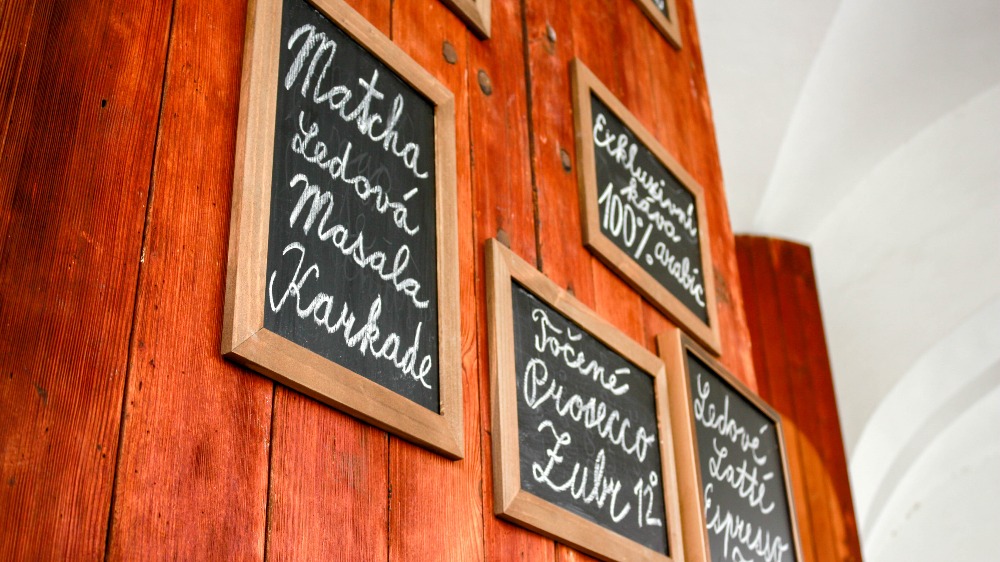 Matcha
Ledová
Masala
Karkade
Exkluzivní
káva
100% arabic
Točené
Prosecco
Zubr 12°
Ledové
Latté
Espresso